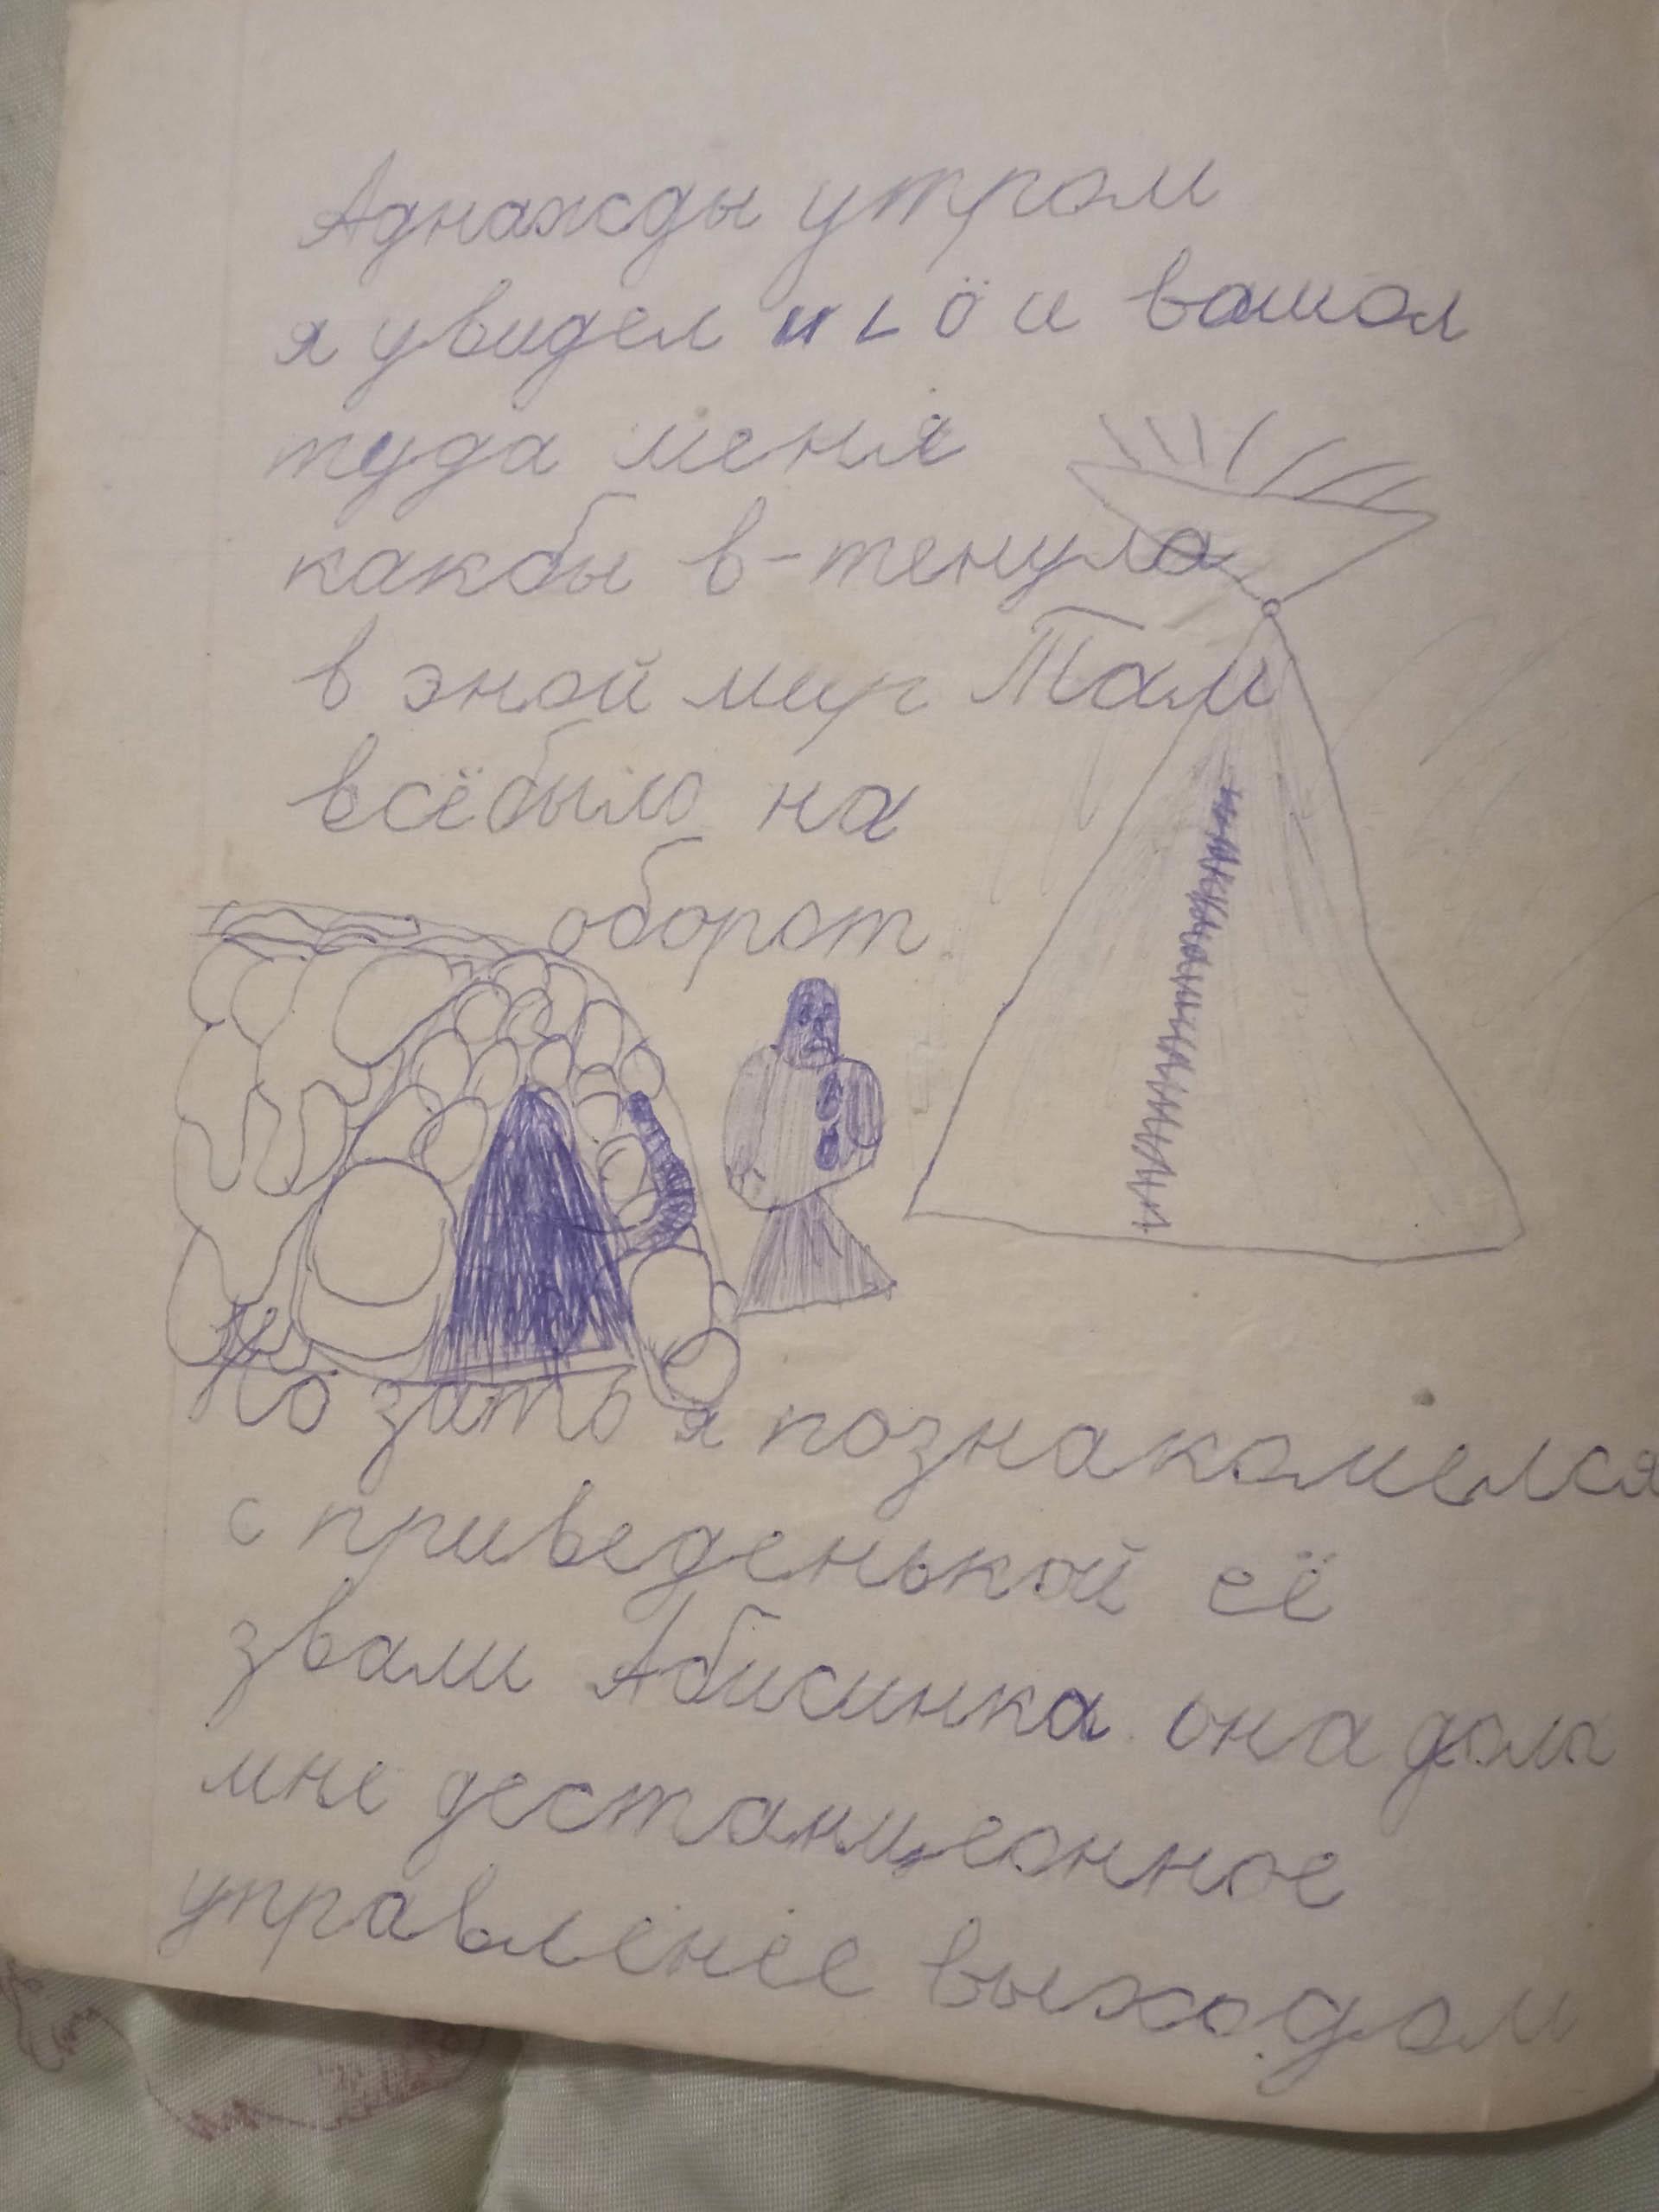 Аднажды утром
я увидел НLÖ и вашол
туда меня
какбы в-тенула
в эной мир Там
всёбыло на
оборот
Но зато я познакомелся
с приведенькой её
звали Абисинка она дала
мне дестанцеонное
управление выходом